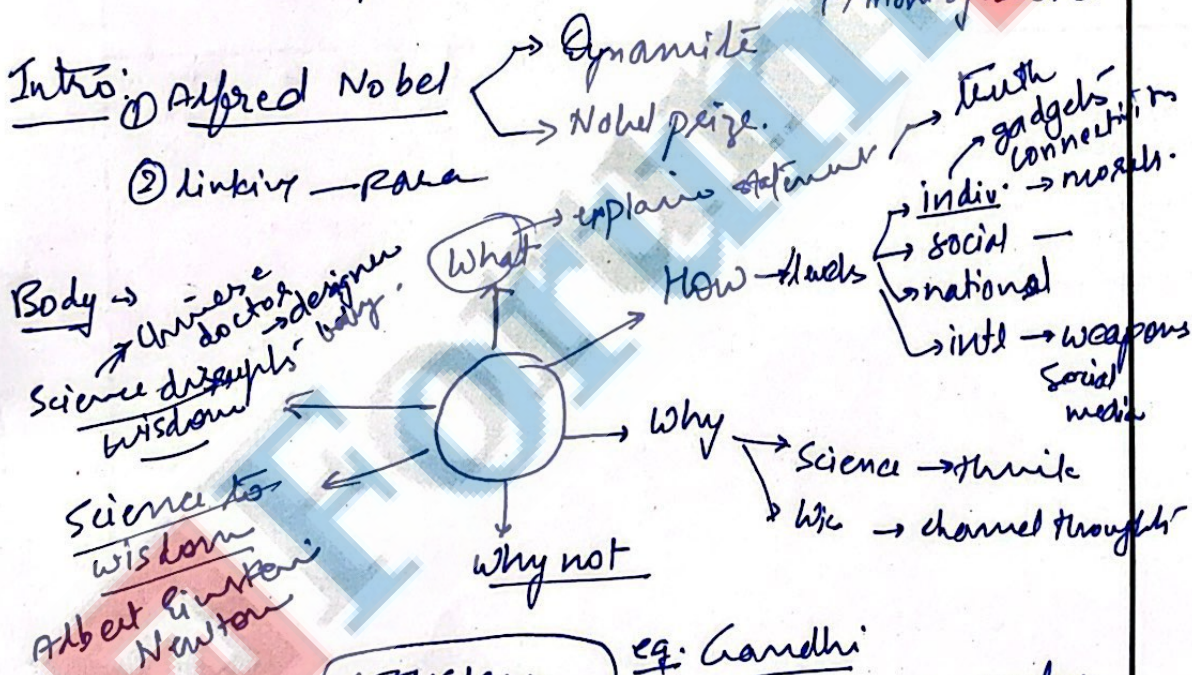 Intro:
① Alfred Nobel
→ Dynamite
→ Nobel prize.
② linking — Para
Body →
What → explain statement → truth
How → levels
→ indiv. → gadgets
connections
→ morals.
→ social —
→ national
→ intl → weapons
Social
media
Why
→ Science → think
→ Wis → channel thoughts
Why not
Science disrupts
wisdom
→ Chinese
doctor
→ designer
baby.
Science to
wisdom
Albert Einstein
Newton
eg. Gandhi
Forum